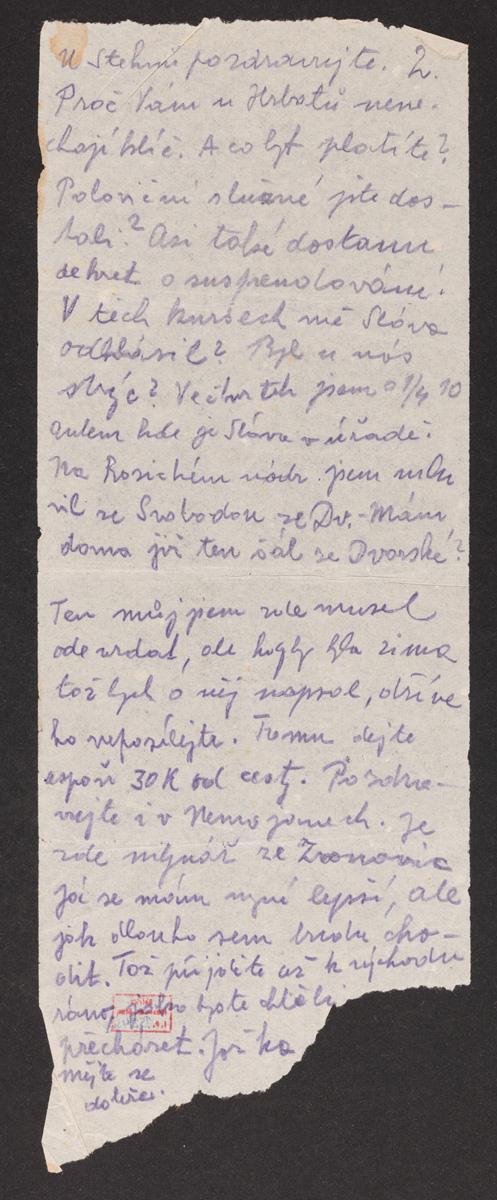 U Stehnů pozdravujte. 2.
Proč Vám u Hrbatů nene-
chají klíč. A co byt platíte?
Poloviční služné jste dos-
tali? Asi také dostanu
dekret o suspendování!
V těch kursech mě Sláva
odhlásil? Byl u nás
strýc? Ve čtvrtek jsem o 1/4 10
autem kde je Sláva v úřadě.
Na Rosickém nádr. jem mlu-
vil se Svobodou ze Dv.- Mám
doma již ten šál ze Dvorské?
Ten můj jsem zde musel
odevzdat, ale kdyby byla zima
tož bych o něj napsal, dříve
ho neposílejte. Tomu dejte
aspoň 30 K od cesty. Pozdra-
vujte i v Nemojanech. Je
zde mlynář ze Zvonovic
Já se mám nyní lepší, ale
jak dlouho sem budu cho-
dit. Tož přijďte až k východu
ráno, jako byste chtěli
přecházet. Joška
Mějte se
dobře.